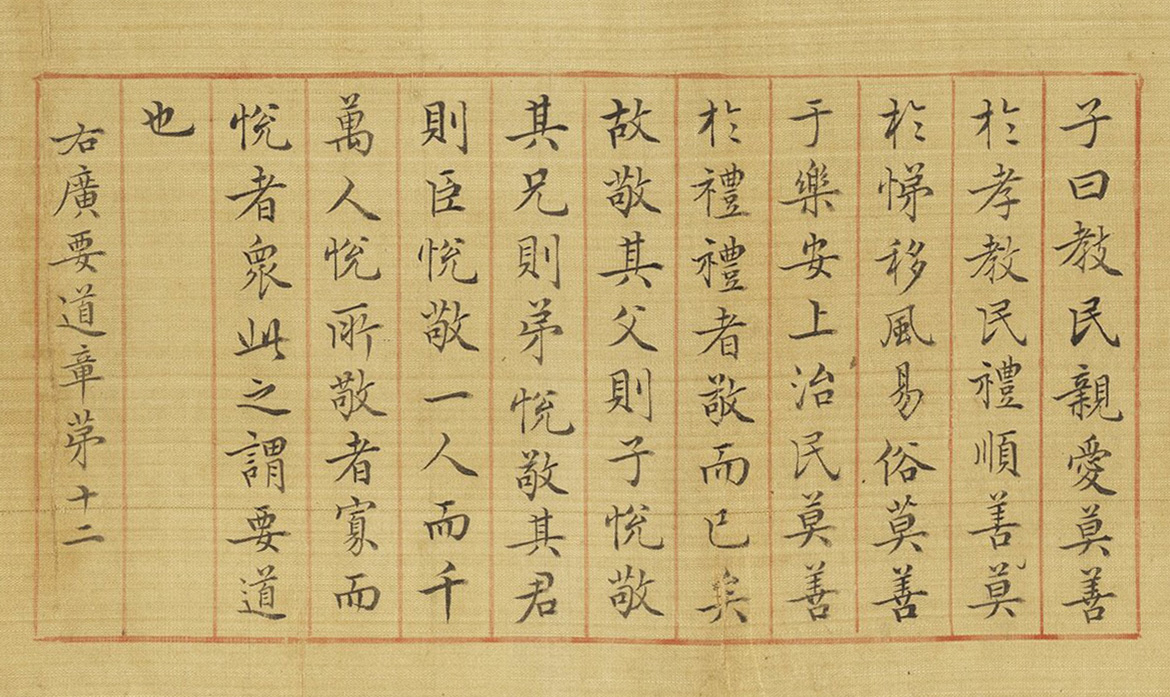 子曰教民親愛莫善
於孝教民禮順善莫
於悌移風易俗莫善
于樂安上治民莫善
於禮禮者敬而已矣
故敬其父則子悅敬
其兄則弟悅敬其君
則臣悅敬一人而千
萬人悅所敬者寡而
悅者眾此之謂要道
也
右廣要道章第十二